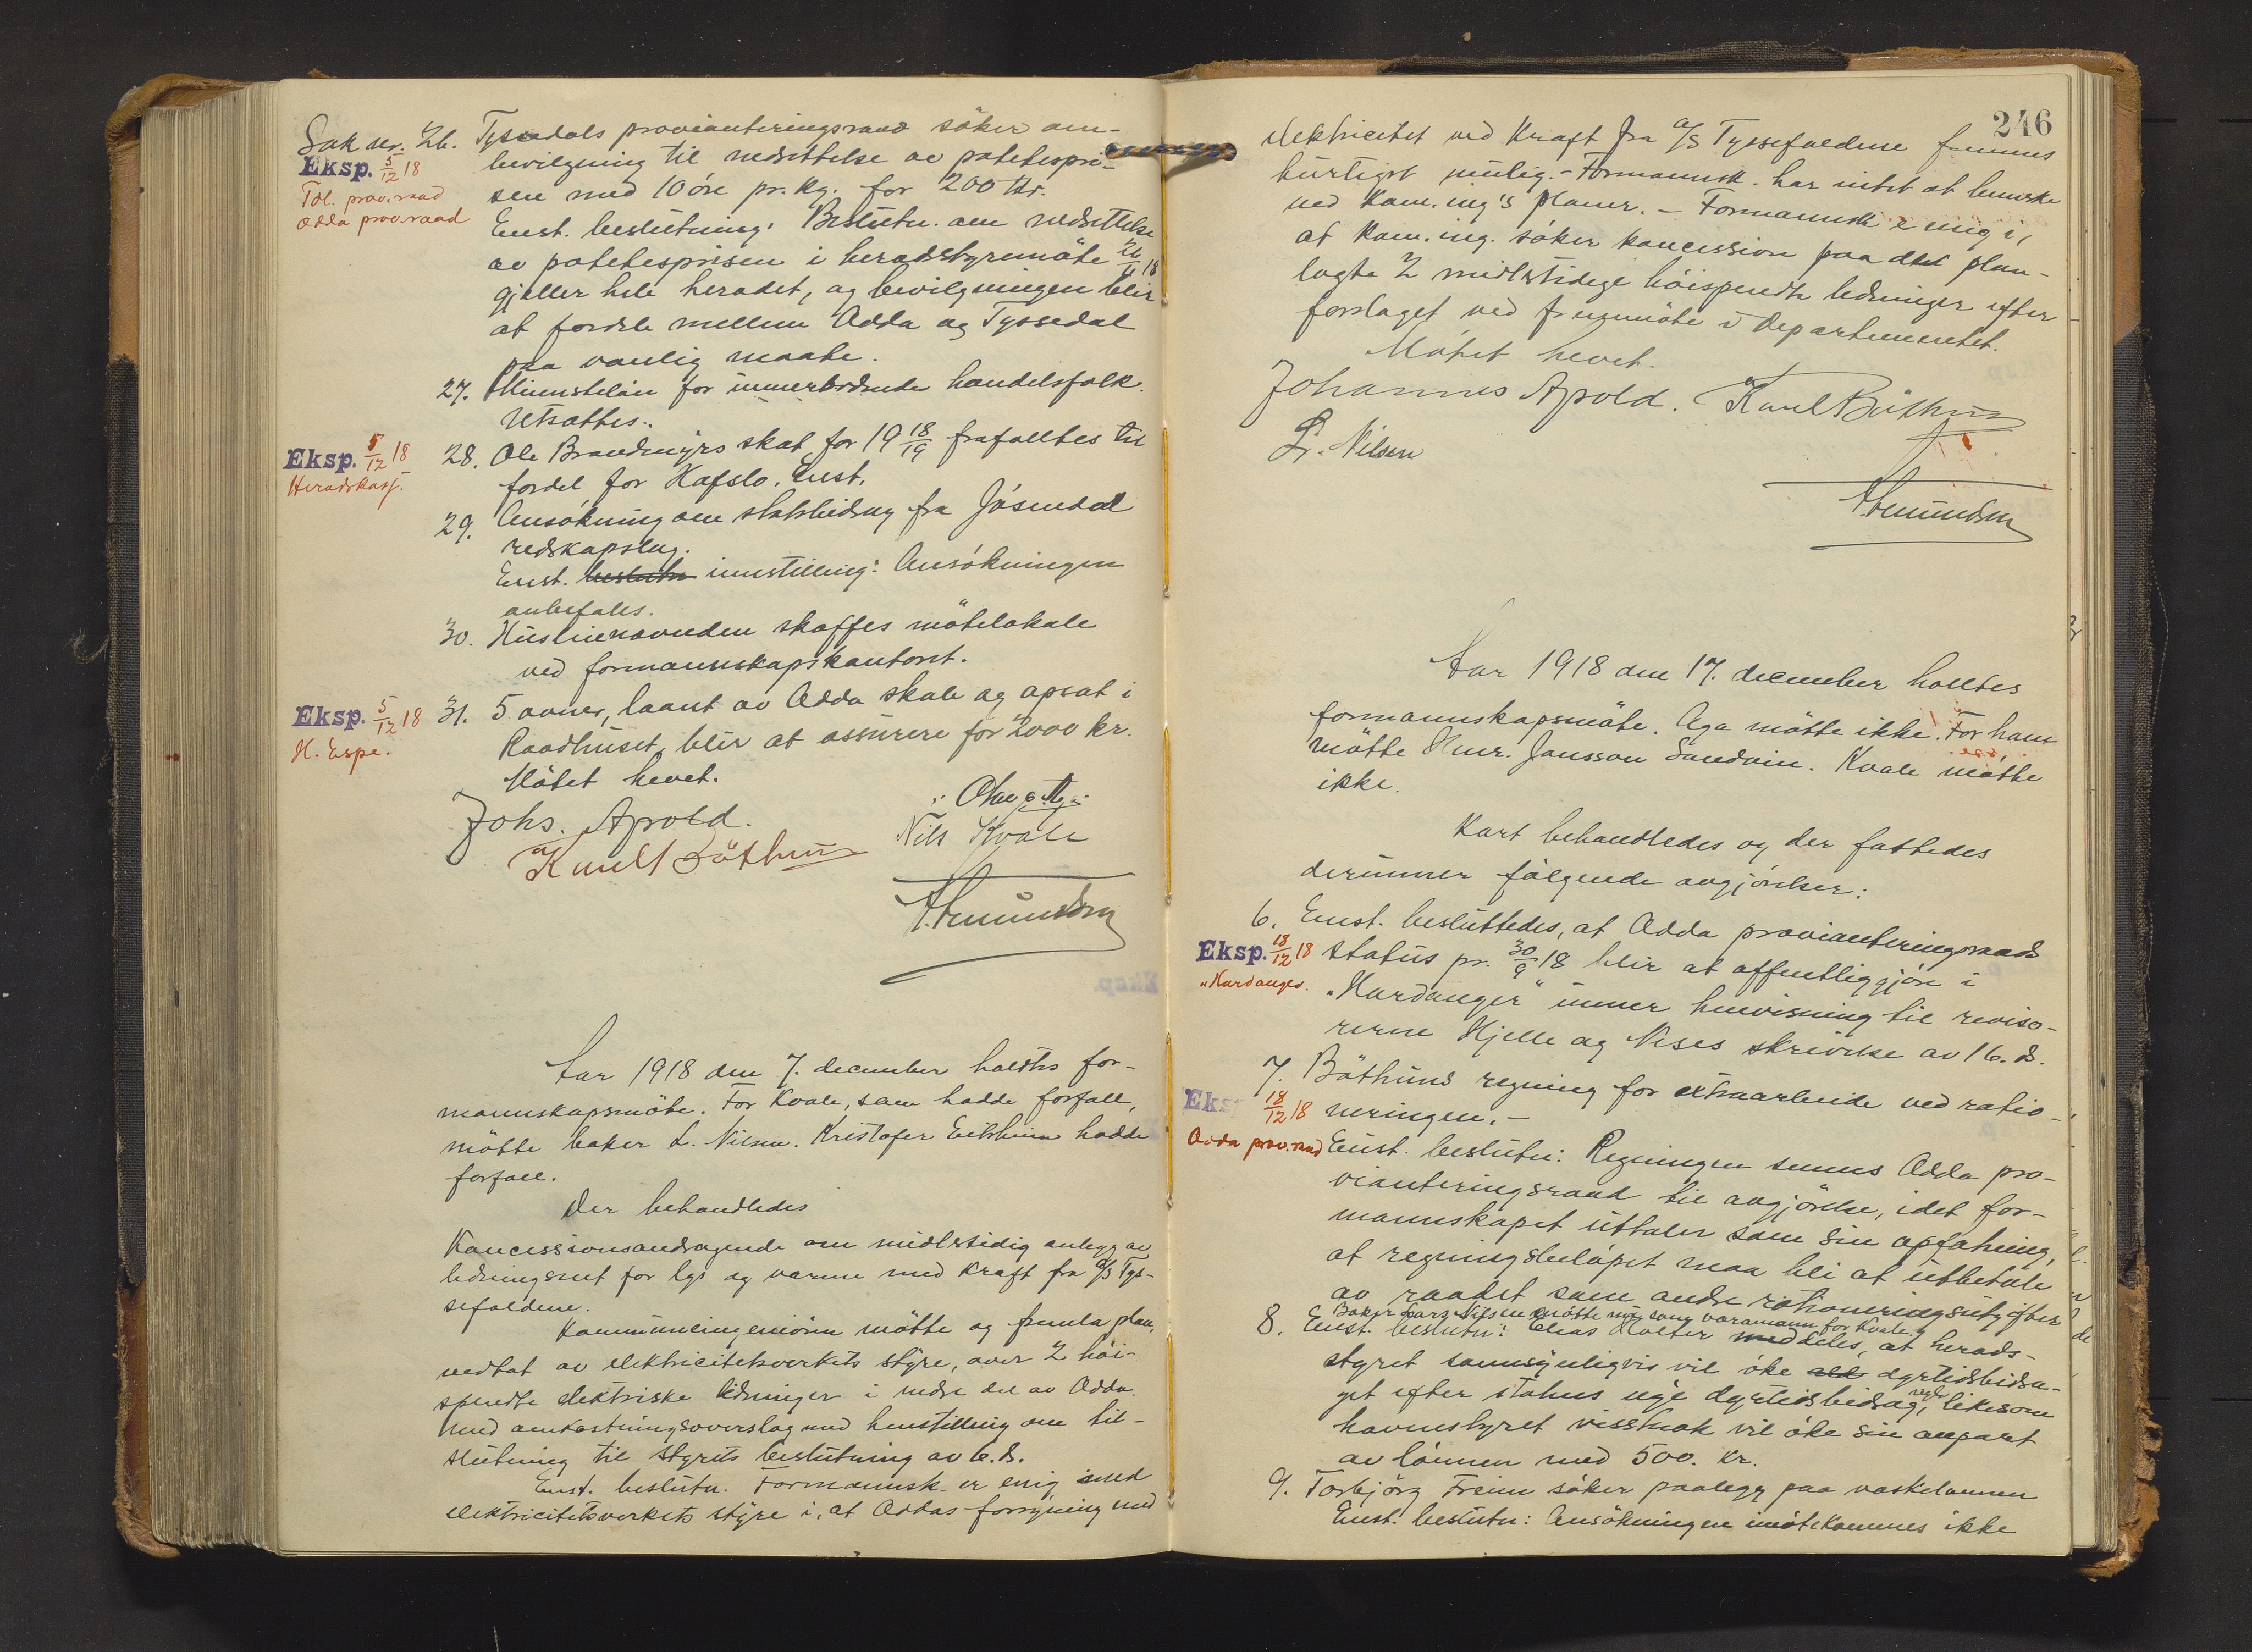 Sak nr. 26. Tyssedals provianteringsraad söker om
Eksp. 5/12 18
Tdl. prov.raad
Odda prov.raad
bevilgning til nedsettelse av potetespri-
sen med 10 öre pr. kg. for 200 tdr.
Enst. beslutning: Beslutn. om nedsettelse
av potetesprisen i heradsstyremöte 26/11 18
gjeller hele heradet, og bevilgningen blir
at fordele mellem Odda og Tyssedal
paa vanlig maate.
27. Minnstelön for umerbrdende handelsfolk.
Utsattes.
Eksp. 5/12 18
Heradskass.
28. Ole Brandmyrs skat for 19 18/19 frafalltes til
fordel for Hafslo. Enst.
29. Ansökning om statsbidrag fra Jösendal
redskapslag.
Enst. beslutn innstilling: Ansökningen
anbefales.
30. Husleienevnden skaffes mötelokale
ved formannskapskontoret.
Eksp. 5/12 18
H. Espe.
31. 5 ovner, laant av Odda skole og opsat i
Raadhuset, blir at assurere for 2000 kr.
Mötet hevet.
Johs. Apold. Olav Aga
Knut Böthun Nils Kvale
Amundsen
Aar 1918 den 7. december holdtes for-
mannskapsmöte. For Kvale, som hadde forfall,
mötte baker L. Nilsen. Kristofer Eitrheim hadde
forfall.
Der behandledes
Koncessionsandragende om midlertidig anlegg av
ledningsnet for lys og varme med kraft fra a/s Tys-
sefaldene.
Kommuneingeniören mötte og fremla plan,
vedtat av elektricitetsverkets styre, over 2 höi-
spendte elektriske ledninger i nedre del av Odda
med omkostningsoverslag med henstilling om til-
slutning til styrets beslutning av 6. ds.
Enst. beslutn. Formannsk. er enig med
elektricitetsverkets styre i, at Oddas forsyning med
246
elektricitet ved kraft fra a/s Tyssefaldene fremmes
hurtigst mulig. - Formannsk. har intet at bemerke
ved kom.ing's planer. - Formannsk. e enig i,
at kom.ing. söker koncession paa det plan-
lagte 2 midlertidige höispendte ledninger efter
forslaget ved fremmöte i departementet.
Mötet hevet.
Johannes Apold. Knut Böthun
L. Nilsen
Amundsen
Aar 1918 den 17. december holltes
formannskapsmöte. Aga mötte ikke. For ham
mötte Hmr. Jansson Sandvin. Kvale mötte
ikke.
Kart behandledes og der fattedes
derunner fölgende avgjörelser:
6. Enst. besluttedes, at Odda provianteringsraads
Eksp. 18/12 18
"Hardanger.
status pr. 30/9 18 blir at offentliggjöre i
"Hardanger" unner henvisning til reviso-
rerne Hjelle og Nises skrivelse av 16. ds.
7. Böthuns regning for extraarbeide ved ratio-
Eksp 18/12 18
Odda prov.raad
neringen. -
Enst. beslutn: Regningen sennes Odda pro-
vianteringsraad til avgjörelse, idet for-
mannskapet uttaler som sin opfatning,
at regningsbelöpet maa bli at utbetale
av raadet som andre rationeringsutgifter
Baker Lars Nilsen mötte nu som varamann for Kvale.
8. Enst. beslutn: Elias Holter meddeles, at herads-
styret sannsynligvis vil öke ald dyrtidsbidra-
get efter statens nye dyrtidsbidrag, regler likesom
havnestyret visstnok vil öke sin anpart
av lönnen med 500. kr.
9. Torbjörg Freim söker paalegg paa vaskelönnen
Enst. beslutn: Ansökningen imötekommes ikke